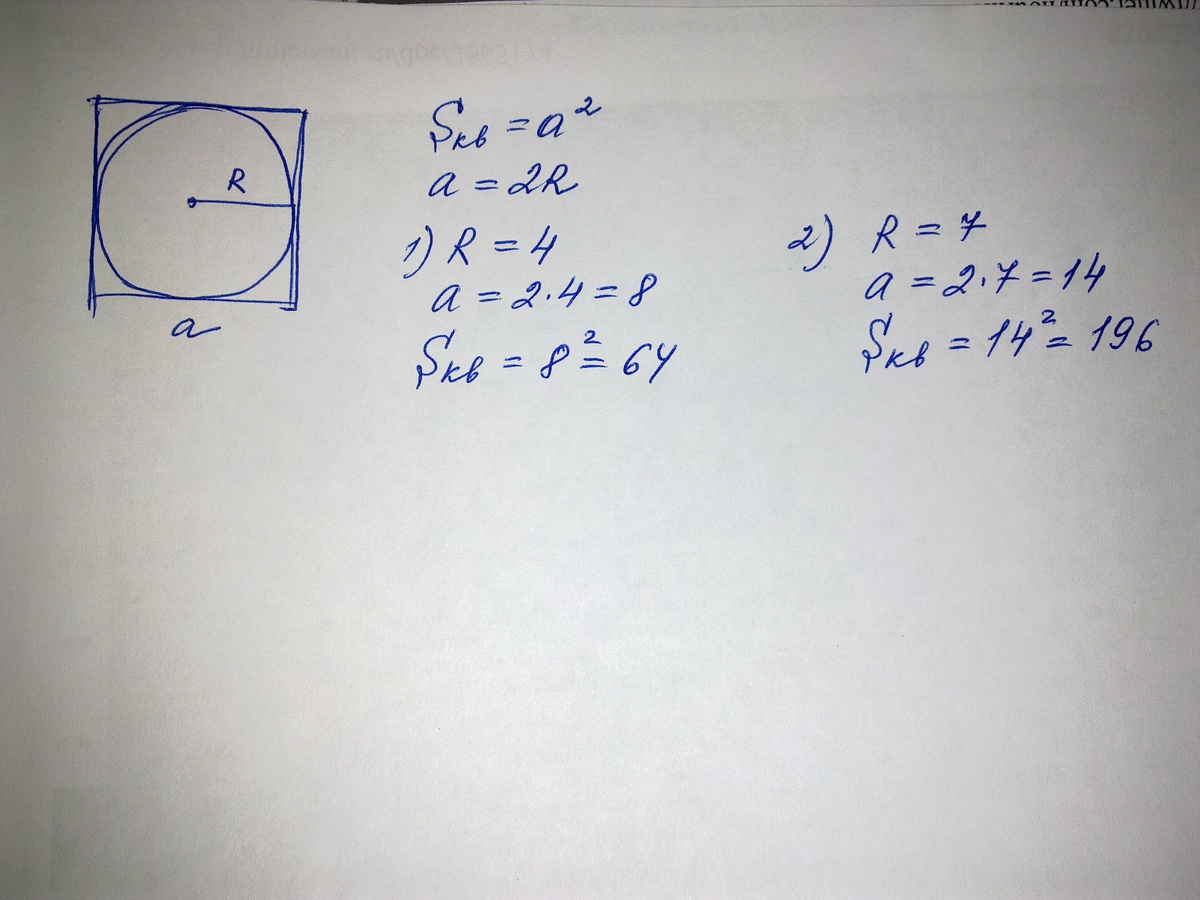 R
a
Sкв = a²
a = 2R
1) R = 4
a = 2·4 = 8
Sкв = 8² = 64
2) R = 7
a = 2·7 = 14
Sкв = 14² = 196